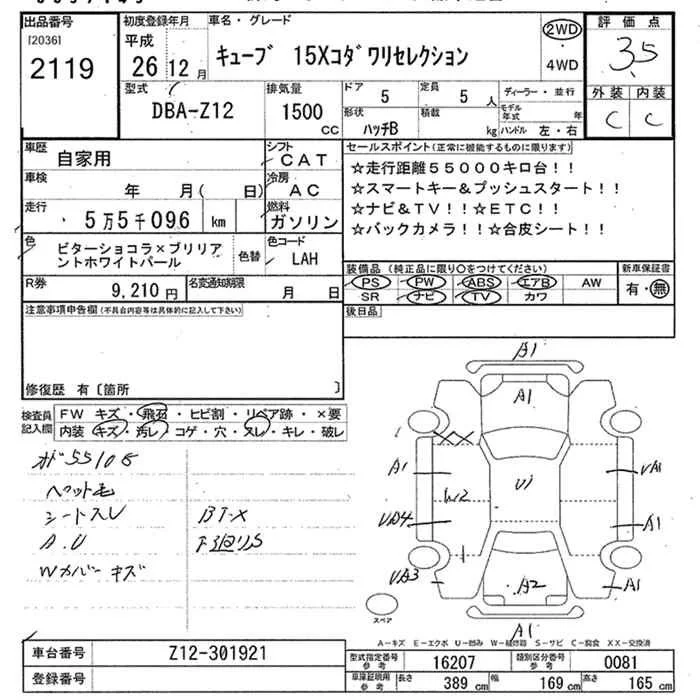 出品番号
[2036]
2119
初度登録年月
平成
26年12月
車名・グレード
キューブ 15Xコダワリセレクション
2WD
・
4WD
評価点
3.5
外装 内装
C C
型式
DBA-Z12
排気量
1500
cc
ドア
5
定員
5人
形状
ハッチB
積載
kg
ディーラー・並行
モデル年式 年
ハンドル 左・右
車歴
自家用
シフト
CAT
車検
年 月( 日)
冷房
AC
走行
5万5千096 km
燃料
ガソリン
色
ビターショコラ×ブリリア
ントホワイトパール
色替
色コード
LAH
R券
9,210円
名変通知期限
月 日
セールスポイント(正常に機能するものに限ります)
☆走行距離55000キロ台!!
☆スマートキー&プッシュスタート!!
☆ナビ&TV!!☆ETC!!
☆バックカメラ!!☆合皮シート!!
装備品(純正品に限り○をつけてください)
PS PW ABS エアB AW
SR ナビ TV カワ
新車保証書
有・無
後日品
注意事項申告欄(不具合内容等は具体的に記入して下さい)
修復歴 有〔箇所 〕
検査員
記入欄
FW キズ・飛石・ヒビ割・リペア跡・×要
内装 キズ・汚レ・コゲ・穴・スレ・キレ・破レ
55108
ペット毛
シートスレ
A.U
Wカバーキズ
BT-X
下回りS
A1
A1
A1
W2
UA4
UA3
U1
UA1
A1
A1
A2
A1
スペア
A-キズ E-エクボ U-凹み W-補修跡 S-サビ C-腐食 XX-交換済
車台番号
Z12-301921
登録番号
型式指定番号
参考
16207
類別区分番号
参考
0081
車庫証明用
参考
長さ
389cm
幅
169cm
高さ
165cm